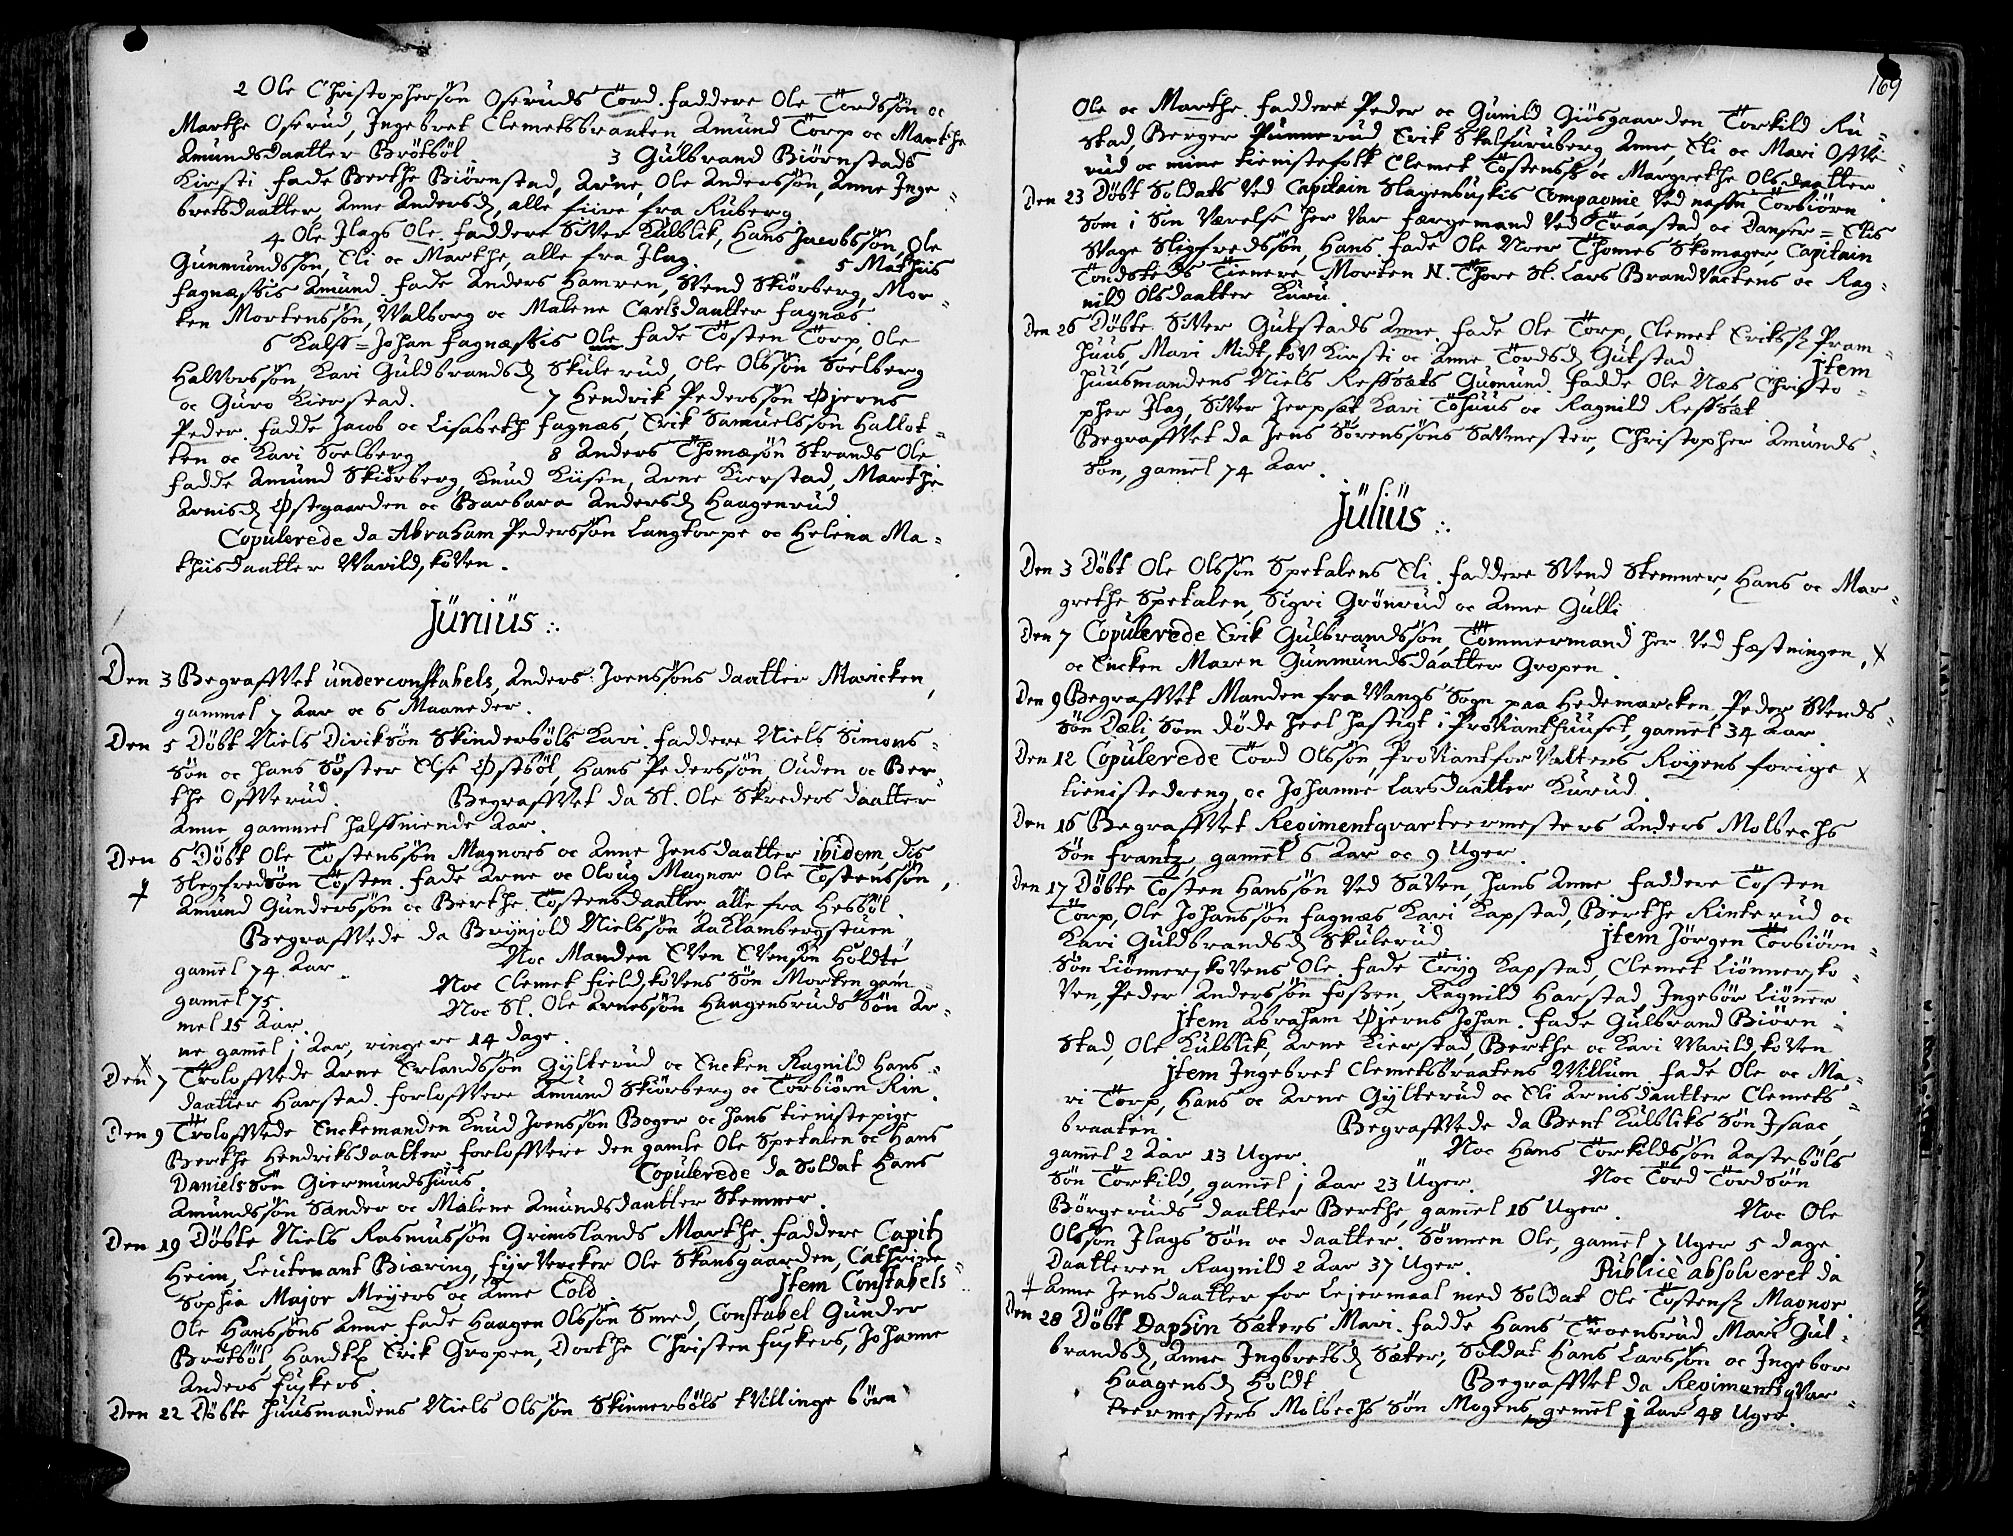 2 Ole Christophersön Oserüds Tord. faddere Ole Tordssön oc
Marthe Oserud, Ingebret Clemetsbraaten Amund Torp oc Marthe
Amundsdaatter Brötböl. 3 Gulbrand Biörnstads
Kirsti. fade Berthe Biörnstad, Arne, Ole Anderssön, Anne Inge=
bretsdaatter, Anne Andersd, alle fiire fra Ruberg.
4 Ole Ilags Ole. faddere Siver Külblik, Hans Jacobssön, Ole
Gunmundssön, Eli oc Marthe, alle fra Ilag. 5 Mathiis
fagnæssis Amund. fade Anders Hamren, Svend Skiörberg, Mor=
ten Mortenssön, Walborg oc Malene Carlsdaatter fagnæs.
6 Kalff=Johan fagnæssis Ole. fade Tösten Torp, Ole
Halvorssön, Kari Guldbrandsd Skülerud, Ole Olssön Soelberg
oc Guro Kierstad. 7 Hendrik Pederssön Øjerns
Peder. fadde Jacob oc Lisabeth fagnæs, Erik Samuelssön Hallot=
ten oc Kari Soelberg. 8 Anders Thomæsön Strands Ole
fadde Amund Skiörberg, Knud Kiisen, Arne Kierstad, Marthe
Arnisd Østgaarden oc Barbara Andersd Haagenrud
Copulerede da Abraham Pederssön Langtorpe oc Helena Ma=
thiisdaatter Varildskoven.
Jünius.
Den 3 Begraffvet ünderconstabels, Anders Joenssöns daatter Maricken,
gammel 7 Aar oc 6 Maaneder.
Den 5 Döbt Niels Diriksön Skinderböls Kari. faddere Niels Simons=
sön oc hans Söster Else Østböl, Hans Pederssön, Ouden oc Ber=
the Offverud. Begraffvet da Sl. Ole Skreders daatter
Anne gammel halffniende Aar.
Den 6 Döbt Ole Töstenssön Magnors oc Anne Jensdaatter ibidem dis
Slegfredsön Tösten. fade Arne oc Oloug Magnor Ole Töstenssön,
Amund Gunderssön oc Berthe Töstensdaatter, alle fra Hesböl.
Begraffvede da Brynjold Nielssön Aaklambergstuen,
gamel 74 Aar. Noc Manden Even Evensön Holdte
gamel 75. Noc Clemet fieldskovens Sön Morten gam=
mel 15 Aar. Noc Sl. Ole Arnessön Haagensruds Sön Ar=
ne gamel 1 Aar, ringere 14 dage.
Den 7 Troloffvede Arne Erlandssön Gylterud oc Encken Ragnild Hans=
daatter Harstad. forloffvere Amund Skiörberg oc Torbiörn Rin.
Den 9 Troloffvede Enckemanden Knud Joenssön Boger oc hans tienistepige
Berthe Hendriksdaatter forloffvere den gamle Ole Spetalen oc Hans
Danielssön Giermundshuus. Copulerede da Soldat Hans
Amundssön Sander oc Malene Amundsdaatter Skemner.
Den 19 Döbte Niels Rasmussön Grimslands Marthe. faddere Capit
Heim, Leutenant Biæring, fyrvercker Ole Skansgaarden, Cathrine
Sophia Major Meyers oc Anne Cold. Jtem Constabels
Ole Hanssöns Anne fade Haagen Olssön Smed, Constabel Gunder
Brötböl, Handtl Erik Gropen, Dorthe Christen fyskers, Johanne
Anders fyskers.
Den 22 Döbte huusmandens Niels Olssön Skinnerböls tvillinge börn
169
Ole oc Marthe. faddere Peder oc Gunild Giösgaarden Torkild Ru=
stad, Berger Punnerud Erik Skulfuruberg Anne, Eli oc Mari Offve=
rud oc mine tienistefolk Clemet Töstenss oc Margrethe Olsdaatter.
Den 23 Döbt Soldats ved Capitain Slagenbuskis Compagnie ved nafn Torbiörn
Som i Sin værelse her var færgemand ved Traastad, oc Danser=Elis
Svage Sligfredssön, Hans. fade Ole Moer Thomes Skomager, Capitain
Tordsteds Tienere, Morten N. Thore Sl. Lars Brandvactens oc Rag=
nild Olsdaatter Kuru.
Den 26 Döbte Siver Gutstads Anne. fade Ole Torp, Clemet Erikss Pram=
huus, Mari Midtskov Kirsti oc Anne Tordsd Gutstad Jtem
huusmandens Niels Ressæts Gumund. fadde Ole Næs Christo=
pher Ilag, Siver Jerpset Kari Tohuus oc Ragnild Ressæt
Begraffvet da Jens Sörenssöns Savmester, Christopher Amunds=
sön, gamel 74 Aar.
Jülius.
Den 3 Döbt Ole Olssön Spetalens Eli. faddere Svend Skemner, Hans oc Mar=
grethe Spetalen, Sigri Grönrud oc Anne Gulli
Den 7 Copulerede Erik Gulbrandssön, Tömmermand her ved fæstningen,
oc Encken Maren Gunmundsdaatter Gropen.
Den 9 Begraffvet Manden fra Vangs Sogn paa Hedemarcken Peder Svends=
sön Dæli, Som döde heel hastigt i Provianthuuset, gamel 34 Aar.
Den 12 Copulerede Tord Olssön, Proviantforvalters Röyens forige
tienistedreng, oc Johanne Larsdaatter Kurud.
Den 16 Begraffvet Regimentqvarteermesters Anders Molbechs
Sön frantz, gamel 6 Aar oc 9 Uger.
Den 17 Döbte Tosten Hanssön ved Saven, hans Anne. faddere Tösten
Torp, Ole Johanssön fagnæs Kari Kapstad, Berthe Rinterud oc
Kari Guldbrandsd Skülerud. Jtem Jörgen Torbiörn=
sön Liönnerskovens Ole. fade Tryg Kapstad, Clemet Liönnersko=
ven, Peder Anderssön fossen, Ragnild Harstad, Ingebör Liönner
Jtem Abraham Øjerns Johan. fade Gulbrand Biörn=
stad, Ole Külblik, Arne Kierstad, Berthe oc Kari Varildskoven
Jtem Ingebret Clemetsbraatens Willum fade Ole oc Ma=
ri Torp, Hans oc Arne Gylterud oc Eli Arnisdaatter Clemets=
braaten. Begraffvede da Bent Külbliks Sön Isaac,
gamel 2 Aar 13 Uger. Noc Hans Torkildssön Aasteböls
Sön Torkild, gamel 1 Aar 23 Uger. Noc Tord Tordsön
Börgeruds daatter Berthe, gamel 16 Uger. Noc Ole
Olssön Ilags Sön oc daatter. Sönnen Ole, gamel 7 Uger 5 dage.
Daatteren Ragnild 2 Aar 37 Uger. Publice absolveret da
Anne Jensdaatter for Lejermaal med Soldat Ole Töstenss Magnor.
Den 28 Döbt Daphin Sæters Mari. fadde Hans Troensrud Mari Gul=
brandsd, Anne Ingbretsd Sæter, Soldat Hans Larssön oc Ingebor
Haagensd Holdt Begraffvet da Regimentqvar=
teermesters Molbechs Sön Mogens, gamel 1 Aar 48 Uger.